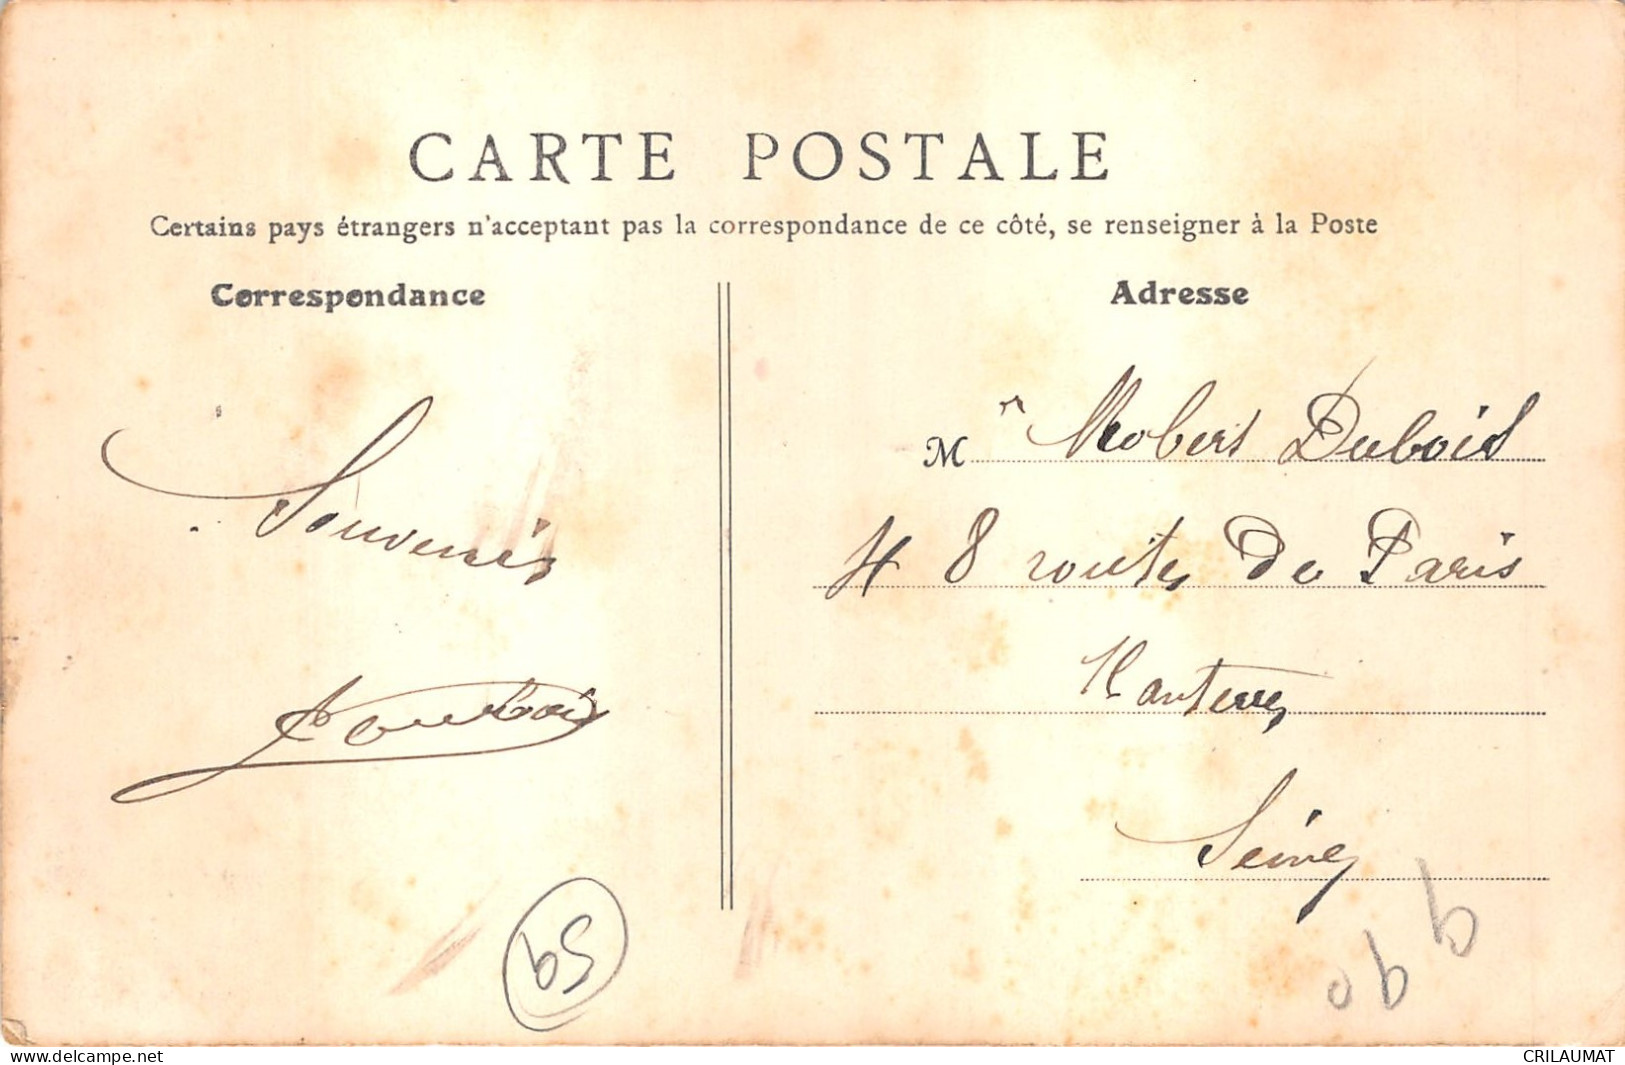 CARTE POSTALE
Certains pays étrangers n'acceptant pas la correspondance de ce côté, se renseigner à la Poste
Correspondance
Adresse
Souvenir
M r Robert Dubois
48 route de Paris
Nanterre
Seine
59
www.delcampe.net
CRILAUMAT